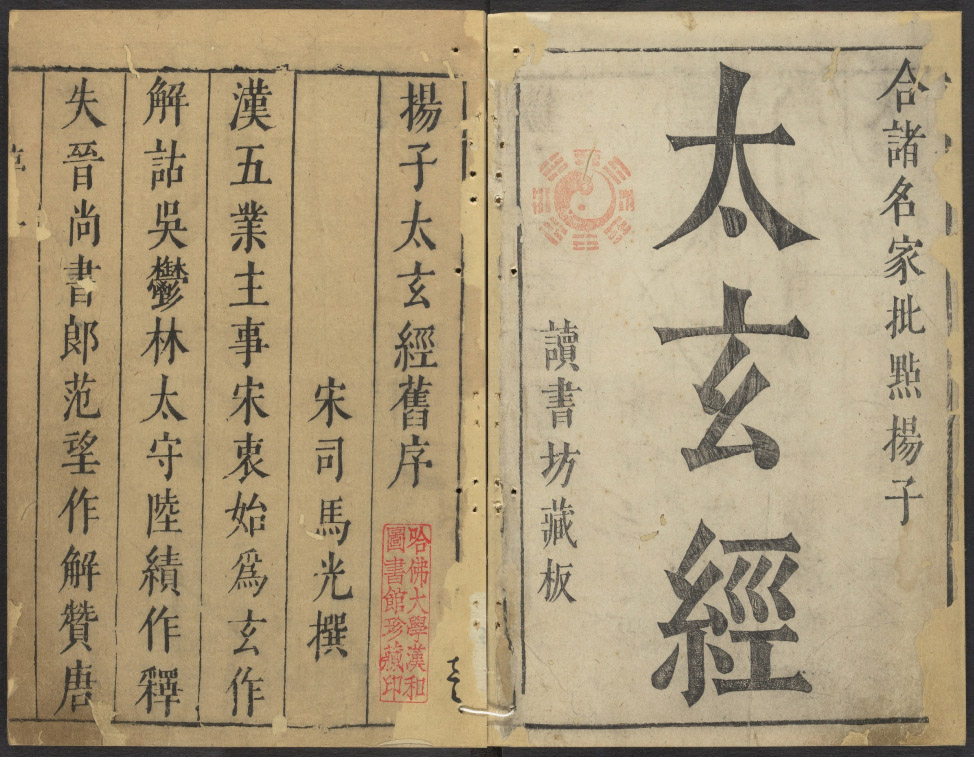 合諸名家批點揚子
太玄經
讀書坊藏板
揚子太玄經舊序
哈佛大學漢和
圖書館珍藏印
宋司馬光撰
漢五業主事宋衷始爲玄作
解詁吳鬱林太守陸績作釋
失晉尚書郎范望作解贊唐